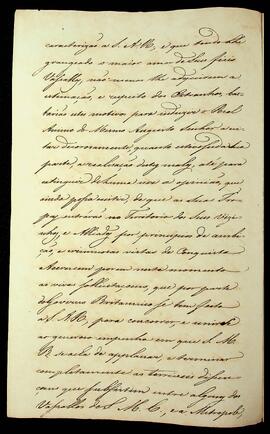 caracterizão a S. A. R., e que tendo-lhe
grangeado o maior amor de Seus fieis
Vassallos, não menos lhe adquirirão a
estimação, e respeito dos Estranhos, bas-
tarião estes motivos para induzir o Real
Animo do Mesmo Augusto Senhor a evi-
tar decorosamente, quanto estivesse da Sua
parte, a realização destes males, até para
extinguir de huma vez a opinião, que
ainda possa entre, de que as Suas Tro-
pas entrarão no Territorio dos Seus Vizi-
nhos, e Alliados por principios de ambi-
ção, e criminosas vistas de Conquista
Accrescem porem neste momento
as vivas sollicitações, que por parte
do Governo Britannico se tem feito
a S. A. R., para concorrer, e
ao generoso empenho em que S. M.
B. se acha de applanar, e terminar
completamente as terriveis dissen-
çoens que subsistem entre alguns dos
Vassallos de S. M. C., e a Metropoli,